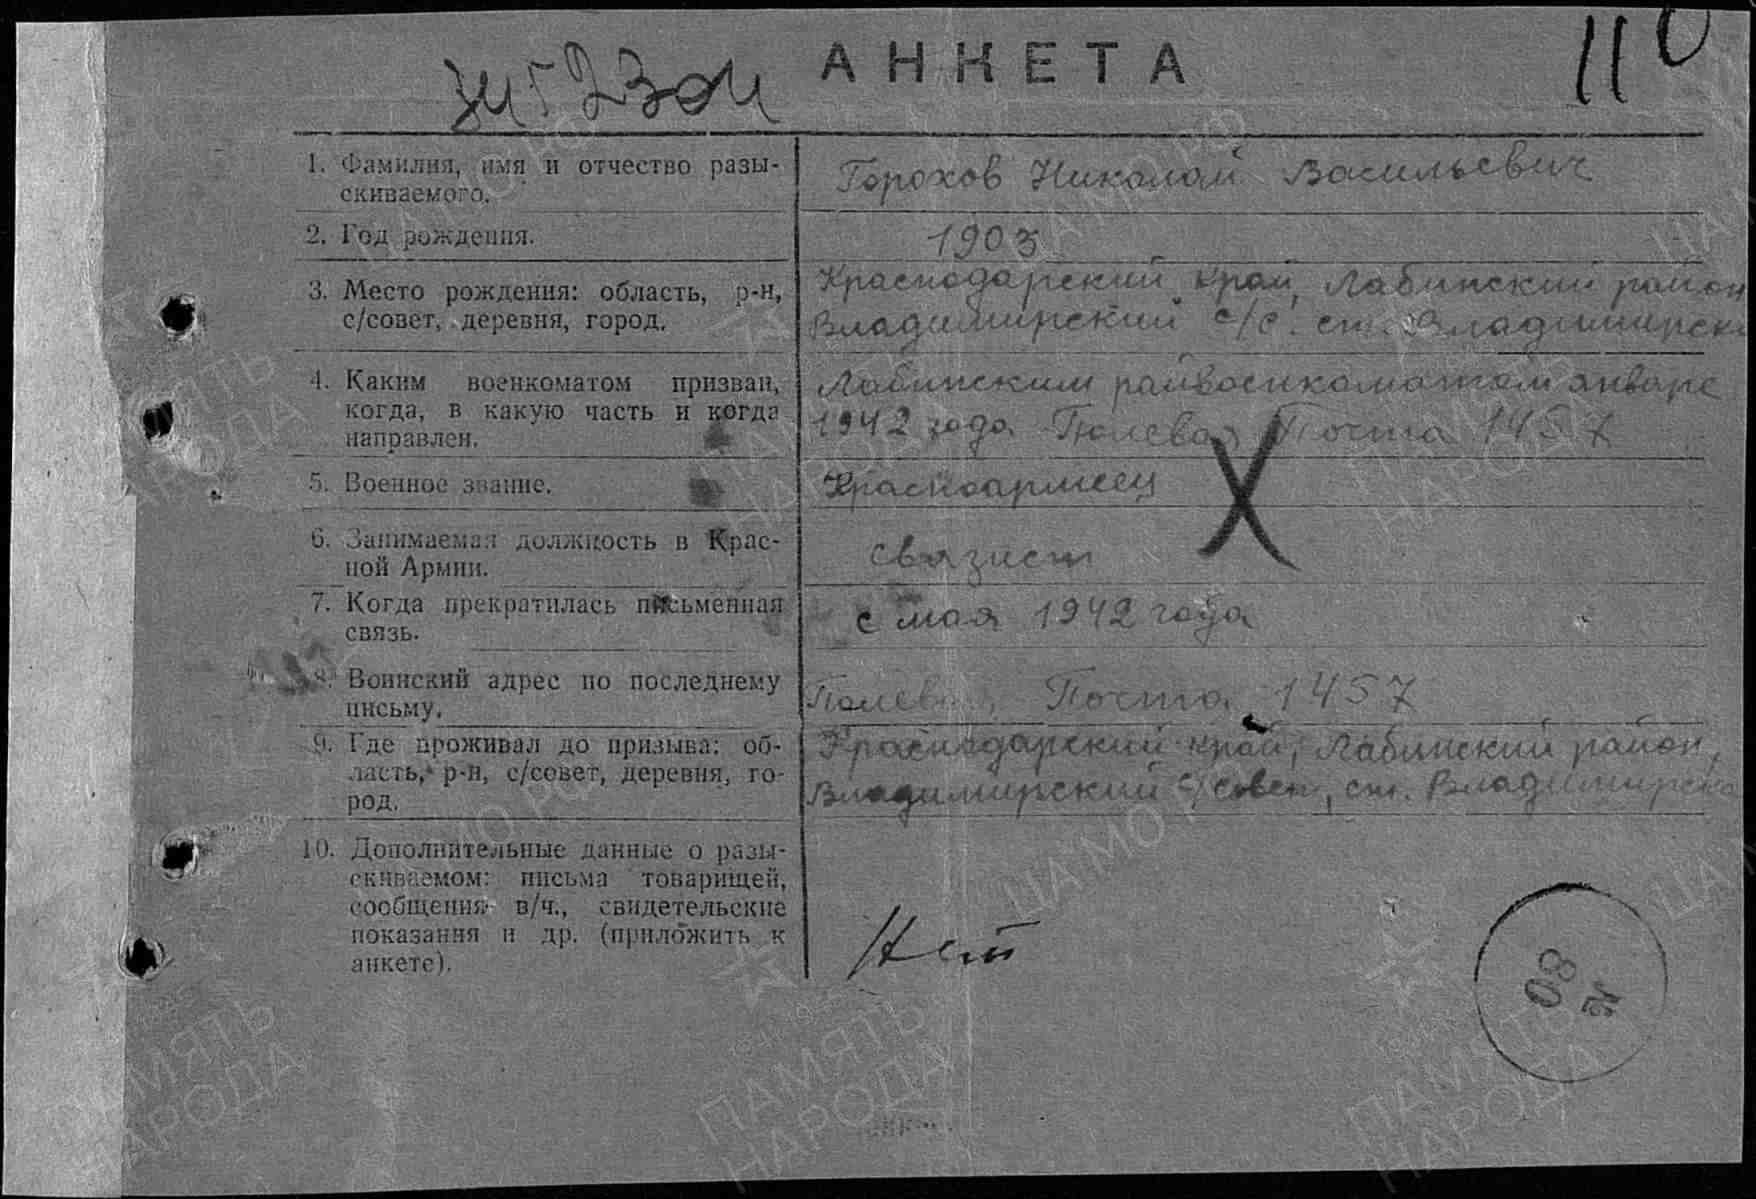 АНКЕТА
110
1. Фамилия, имя и отчество разы-
скиваемого.
Горохов Николай Васильевич
2. Год рождения.
1903
3. Место рождения: область, р-н,
с/совет, деревня, город.
Краснодарский край, Лабинский район
Владимирский с/с. ст. Владимирска
4. Каким военкоматом призван,
когда, в какую часть и когда
направлен.
Лабинским райвоенкоматом январе
1942 года Полевая Почта 1457
5. Военное звание.
Красноармеец
6. Занимаемая должность в Крас-
ной Армии.
связист
7. Когда прекратилась письменная
связь.
с мая 1942 года
8. Воинский адрес по последнему
письму.
Полевая Почта 1457
9. Где проживал до призыва: об-
ласть, р-н, с/совет, деревня, го-
род.
Краснодарский край, Лабинский район,
Владимирский с/совет, ст. Владимирска
10. Дополнительные данные о разы-
скиваемом: письма товарищей,
сообщения в/ч., свидетельские
показания и др. (приложить к
анкете).
Нет
80
ПАМЯТЬ
НАРОДА
ЦАМО РФ